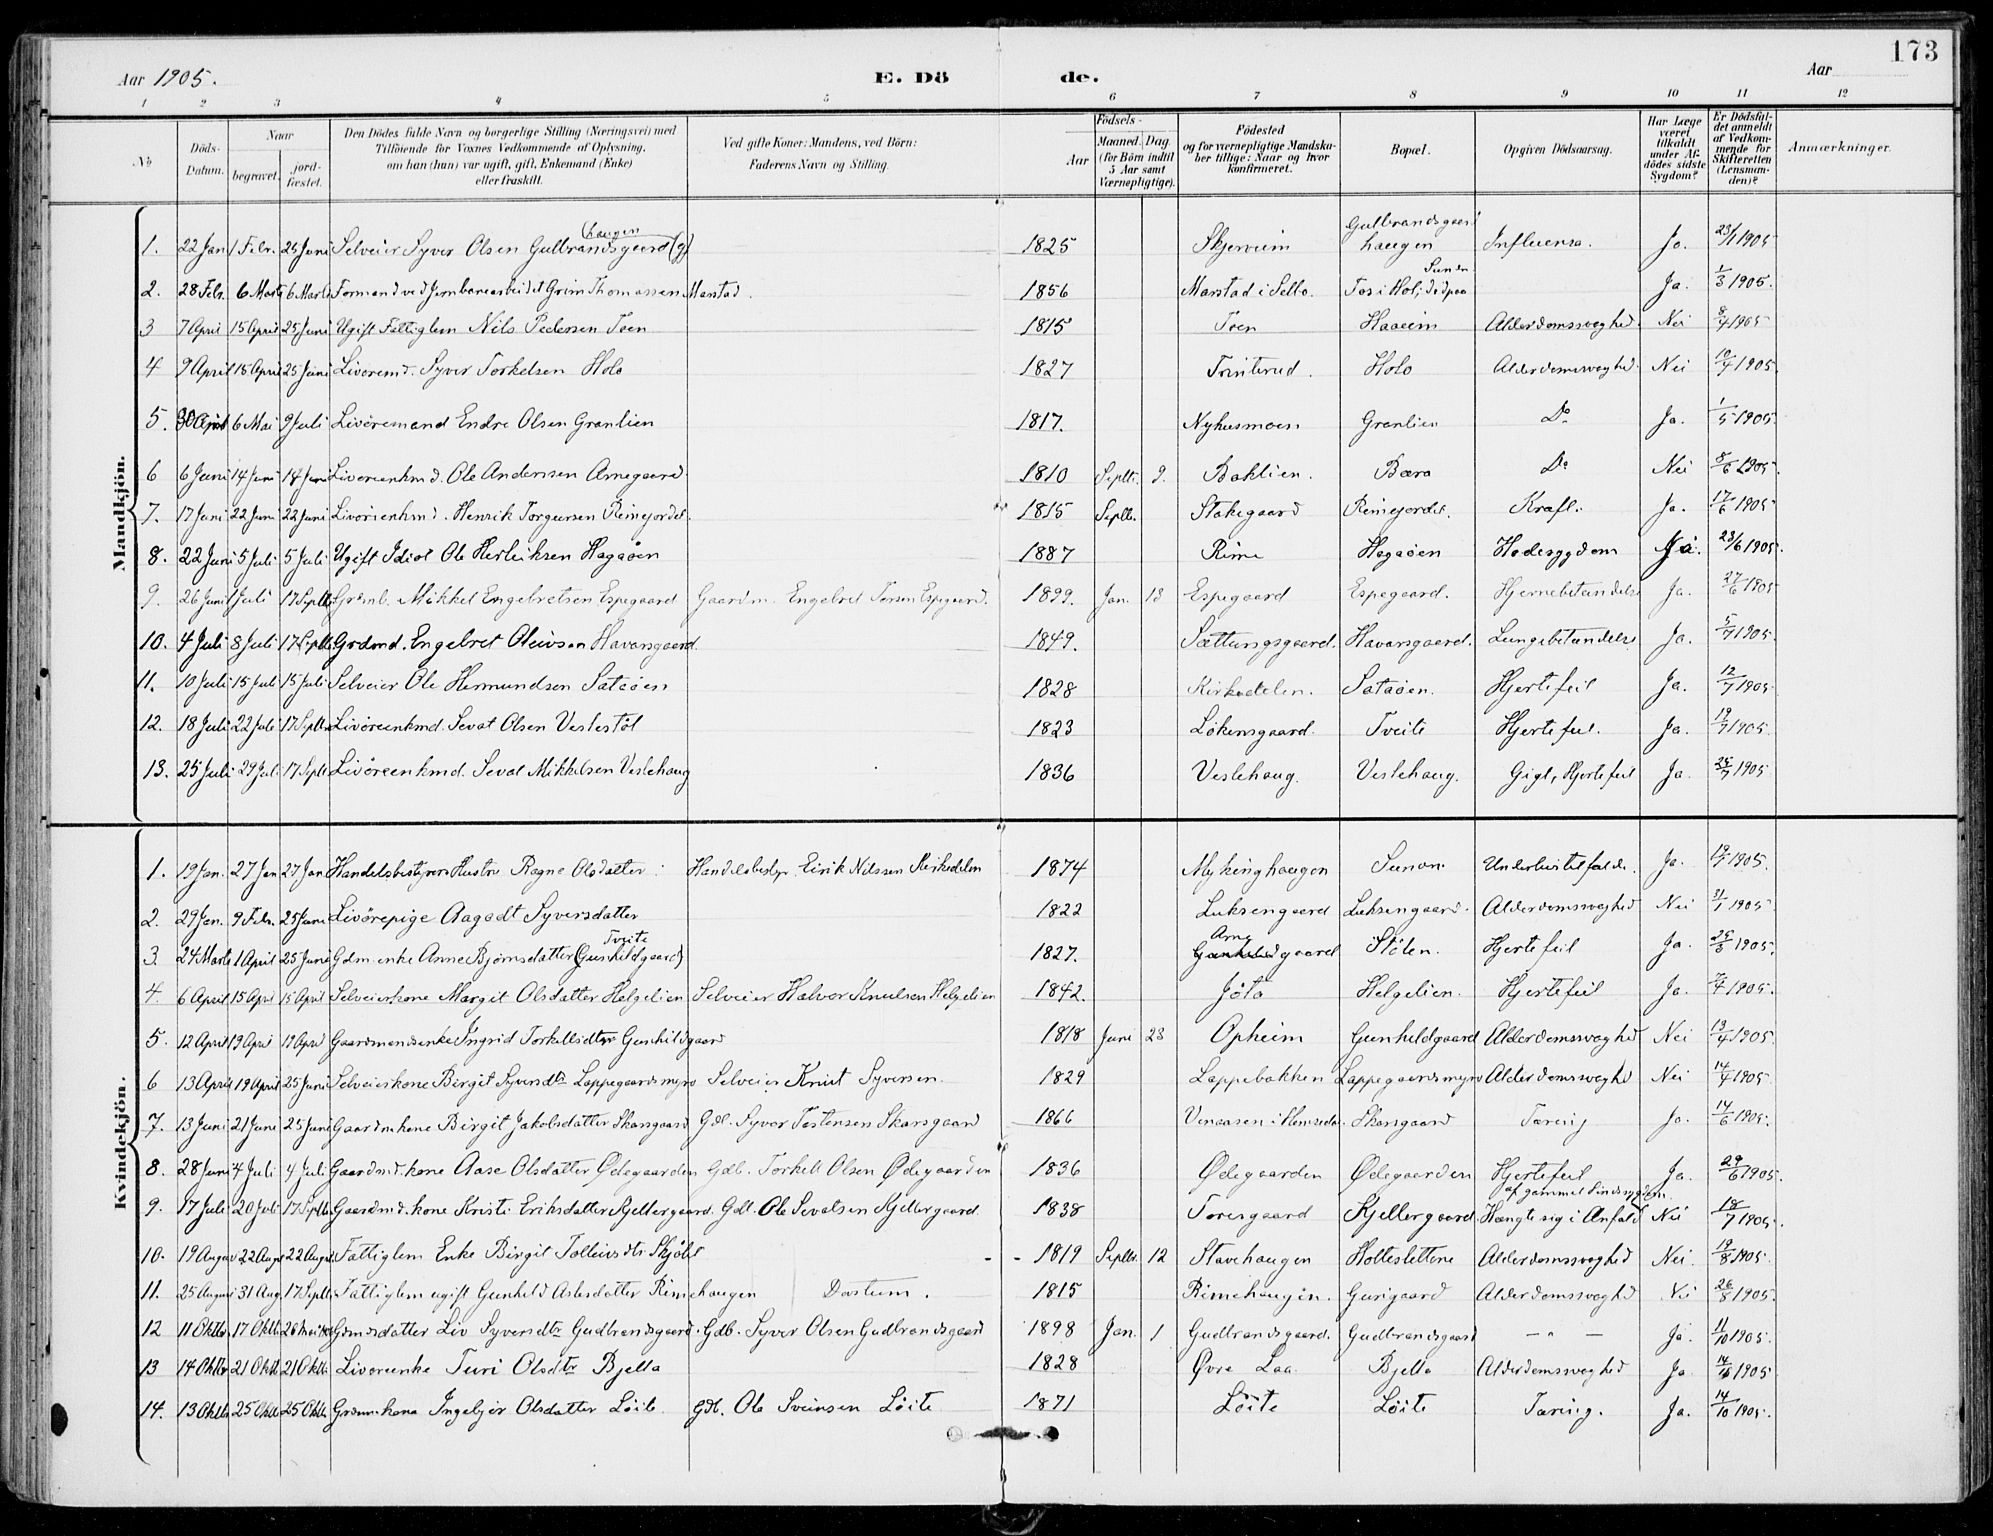 173
Aar 1905. E. Dö de. Aar
1 2 3 4 5 6 7 8 9 10 11 12
No Döds-Datum. Naar begravet. jord-fæstet. Den Dödes fulde Navn og borgerlige Stilling (Næringsvei) med Tilföiende for Voxnes Vedkommende af Oplysning, om han (hun) var ugift, gift, Enkemand (Enke) eller fraskilt. Ved gifte Koner: Mandens, ved Börn: Faderens Navn og Stilling. Födsels- Aar Maaned. Dag. (for Börn indtil 5 Aar samt Værnepligtige). Födested og for værnepligtige Mandskaber tillige: Naar og hvor konfirmeret. Bopæl. Opgiven Dödsaarsag. Har Læge været tilkaldt under Afdödes sidste Sygdom? Er Dödsfaldet anmeldt af Vedkommende for Skifteretten (Lensmanden)? Anmærkninger.
Mandkjön.
1. 22 Jan 1 Febr. 25 Juni Selveier Syver Olsen Gulbrandsgaard haugen 1825 Skjerveim Gulbrandsgaard haugen Influensa. Ja. 23/1 1905
2. 28 Febr. 6 Marts 6 Marts Formand ved Jernbanearbeidet Grim Thomassen Manstad. 1856 Manstad i Selbo. Ja. 1/3 1905.
3 7 April 15 April 25 Juni Ugift Fattiglem Nils Pedersen Toen 1815 Toen Haaeim Alderdomssvaghed. Nei 8/4 1905
4 9 April 15 April 25 Juni Livöremd. Syver Torkelsen Holo 1827 Trinterud. Holo Alderdomssvaghed. Nei 10/4 1905.
5. 30 April 6 Mai 9 Juli Livöremand Endre Olsen Granlien 1817. Nyhusmoen Granlien Do. Ja. 1/5 1905.
6 6 Juni 14 Juni 14 Juni Livöreenkmd. Ole Andersen Arnegaard 1810 Septbr. 9. Baklien. Bæra Do Nei 8/6 1905.
7. 17 Juni 22 Juni 22 Juni Livöreenkmd. Henrik Torgersen Reinejordet. 1815 Septbr. Stakegaard Reinejordet. Kræft. Ja. 17/6 1905
8. 22 Juni 5 Juli 5 Juli Ugift Idiot Ole Herleiksen Hagaöen 1887 Rime Hagaöen Hodesygdom Ja. 23/6 1905.
9. 26 Juni 1 Juli 17 Septbr. Grdmb. Mikkel Engebretsen Espegaard Gaardm. Engebret Torsen Espegaard. 1899. Jan. 13 Espegaard Espegaard. Hjernebetændelse Ja. 27/6 1905
10. 4 Juli 8 Juli 17 Septbr Grdmd. Engebret Oleivson Havarsgaard 1849. Sættungsgaard. Havarsgaard. Lungebetændelse Ja. 5/7 1905.
11. 10 Juli 15 Juli 15 Juli Selveier Ole Hermundsen Sataöen 1828 Kirkedelen. Sataöen. Hjertefeil Ja. 12/7 1905
12. 18 Juli 22 Juli 17 Septbr Livöreenkmd. Sevat Olsen Vestestöl 1823 Lökensgaard. Tveite Hjertefeil. Ja. 19/7 1905.
13. 25 Juli 29 Juli 17 Septbr Livöreenkmd. Sevat Mikkelsen Veslehaug 1836 Veslehaug. Veslehaug. Gigt, Hjertefeil Ja. 25/7 1905.
Kvindekjön.
1. 19 Jan. 27 Jan 27 Jan Handelsbestyrers Hustru Ragne Olsdatter Handelsbestyr. Eirik Nilssen Kirkedelen 1874 Mykinghaugen Sunon. Ja. 19/1 1905.
2. 29 Jan. 9 Febr. 25 Juni Livörepige Aagodt Syversdatter 1822 Luksengaard Luksengaard. Alderdomssvaghed Nei 31/1 1905
3. 24 Marts 1 April 25 Juni Gdm. enke Anne Bjørnsdatter (Gunhildgaard) Tveite 1827. Arnegaard Stölen. Hjertefeil Ja. 25/3 1905.
4. 6 April 15 April 15 April Selveierkone Margit Olsdatter Helgelien Selveier Halvor Knutsen Helgelien 1842. Jöta Helgelien. Hjertefeil Ja. 7/4 1905.
5. 12 April 19 April 19 April Gaardmandsenke Ingrid Torkelsdtr Gunhildgaard 1818 Juni 23 Opheim Gunhildgaard Alderdomssvaghed Nei 13/4 1905.
6 13 April 19 April 25 Juni Selveierkone Birgit Syversdtr Lappegaardsmyro Selveier Knut Syversen. 1829 Lappebakken Lappegaardsmyro Alderdomssvaghed Nei 14/4 1905.
7. 13 Juni 21 Juni 25 Juni Gaardmkone Birgit Jakobsdatter Skarsgaard Gdb. Syver Tostensen Skarsgaard 1866 Venaasen i Hemsedal. Skarsgaard Tæring Ja. 14/6 1905.
8. 28 Juni 4 Juli 4 Juli Gaardmd. kone Aase Olsdatter Ødegaarden Gdb. Torkell Olsen Ødegaarden 1836 Ødegaarden Ødegaarden Hjertefeil Ja. 29/6 1905.
9. 17 Juli 20 Juli 17 Septbr Gaardmd. kone Kristi Eriksdatter Kjellergaard. Gdb. Ole Sevatsen Kjellergaard. 1838 Toresgaard Kjellergaard Hængte sig i Anfald af gammel Sindssygdom. Nei 18/7 1905.
10. 19 August 22 Aug. 22 August Fattiglem Enke Birgit Tolleivsdtr Skjöl 1819 Septbr. 12 Stavehaugen Holteslettene Alderdomssvaghed Nei. 19/8 1905.
11. 25 August 31 Aug. 17 Septbr. Fattiglem ugift Gunhild Aslesdatter Rimehaugen 1815 Rimehaugen. Gurigaard Alderdomssvaghed Nei 26/8 1905.
12 11 Oktbr 17 Oktbr Gdmdsdatter Liv Syversdtr Gudbrandsgaard. Gdb. Syver Olsen Gudbrandsgaard 1898 Jan. 1 Gudbrandsgaard. Gudbrandsgaard — " — Ja. 11/10 1905.
13 14 Oktbr 21 Oktbr 21 Oktbr Livöreenke Turi Olsdtr Bjella 1828 Øvre Laa. Bjella Alderdomssvaghed Ja 14/10 1905
14. 13 Oktbr 25 Oktbr 25 Oktbr Grdmkone Ingebjør Olsdatter Löite Gdb. Ole Sveinsen Löite 1871 Löite Löite Tæring. Ja. 14/10 1905.